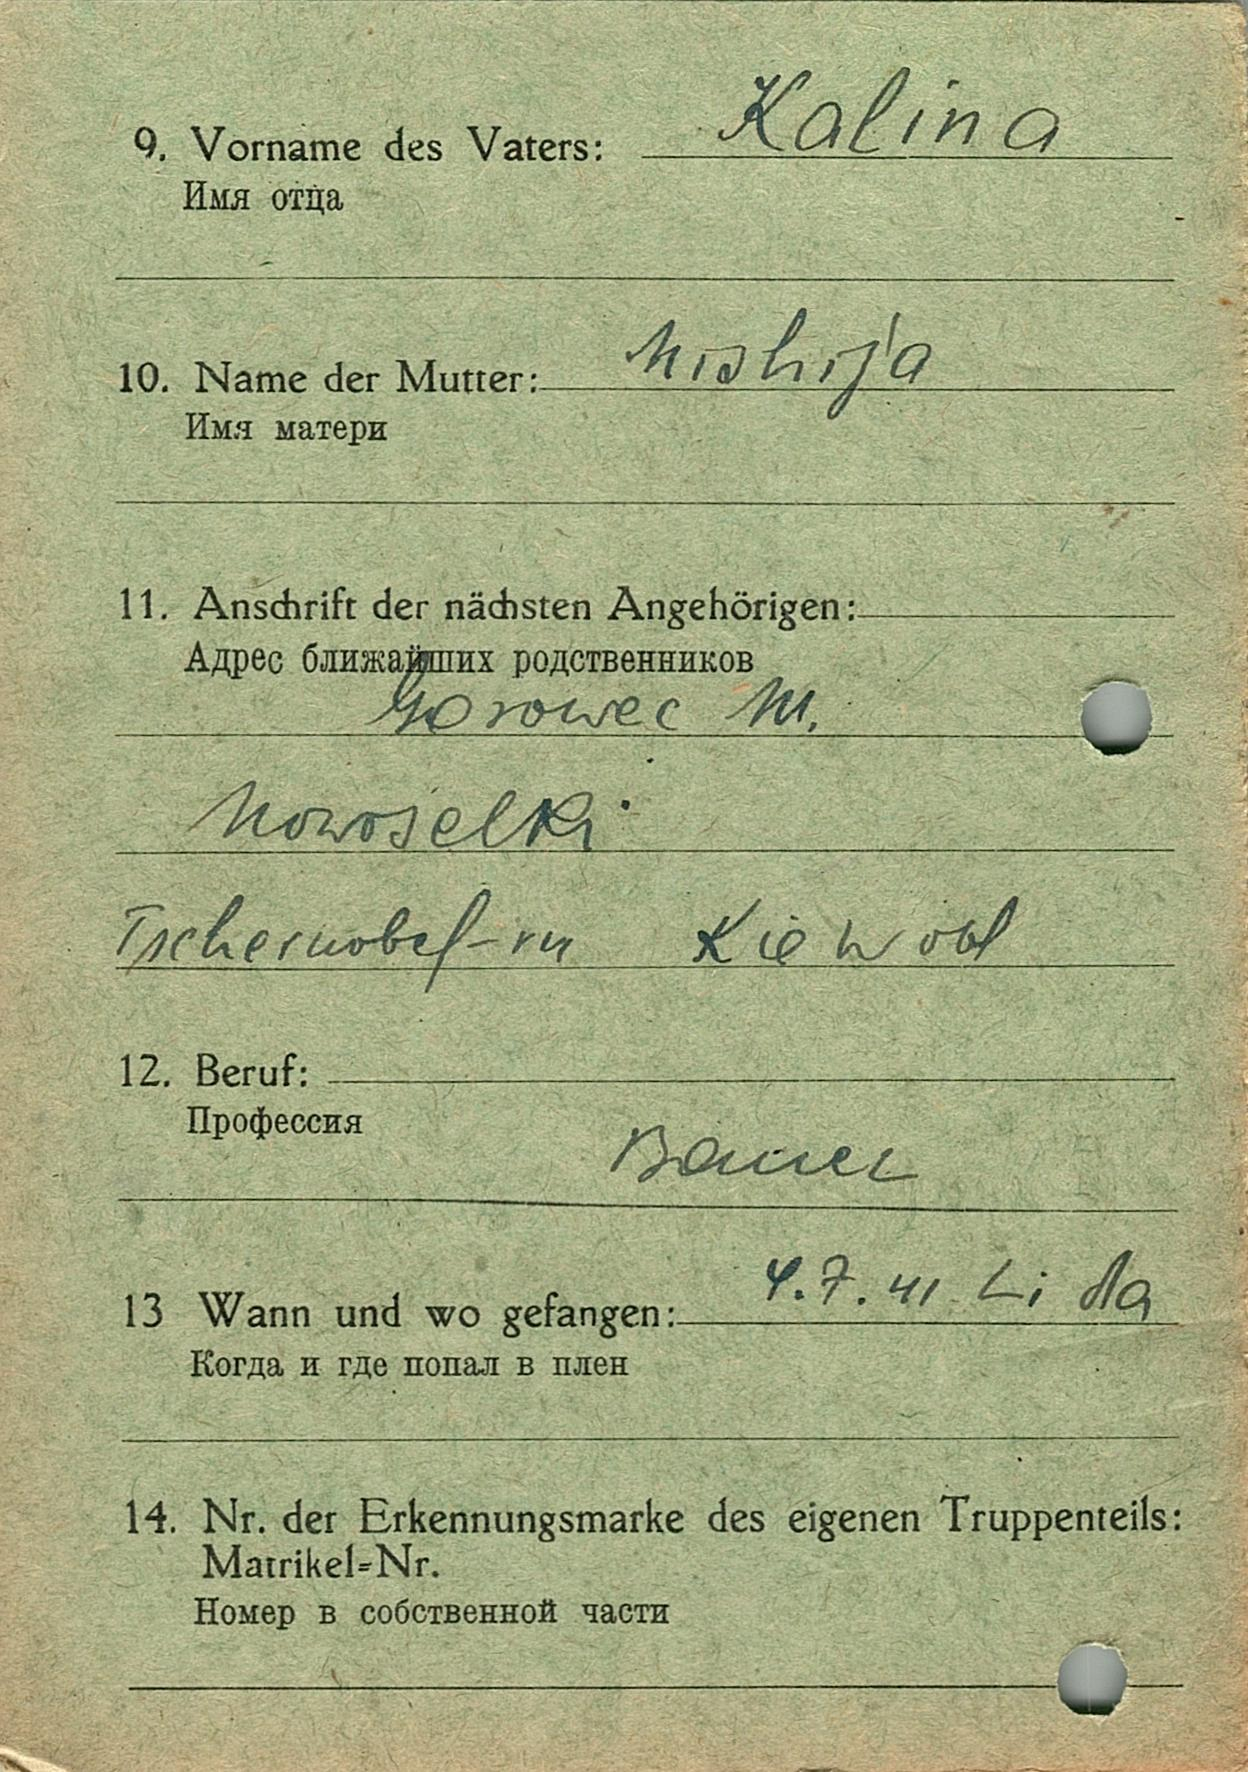 9. Vorname des Vaters: Kalina
Имя отца
10. Name der Mutter:
Имя матери
11. Anschrift der nächsten Angehörigen:
Адрес ближайших родственников
Gorowec M.
Nowoselki
Tschernobel-rn Kiew obl
12. Beruf:
Профессия
Bauer
13 Wann und wo gefangen: 4.7.41 Lida
Когда и где попал в плен
14. Nr. der Erkennungsmarke des eigenen Truppenteils:
Matrikel-Nr.
Номер в собственной части